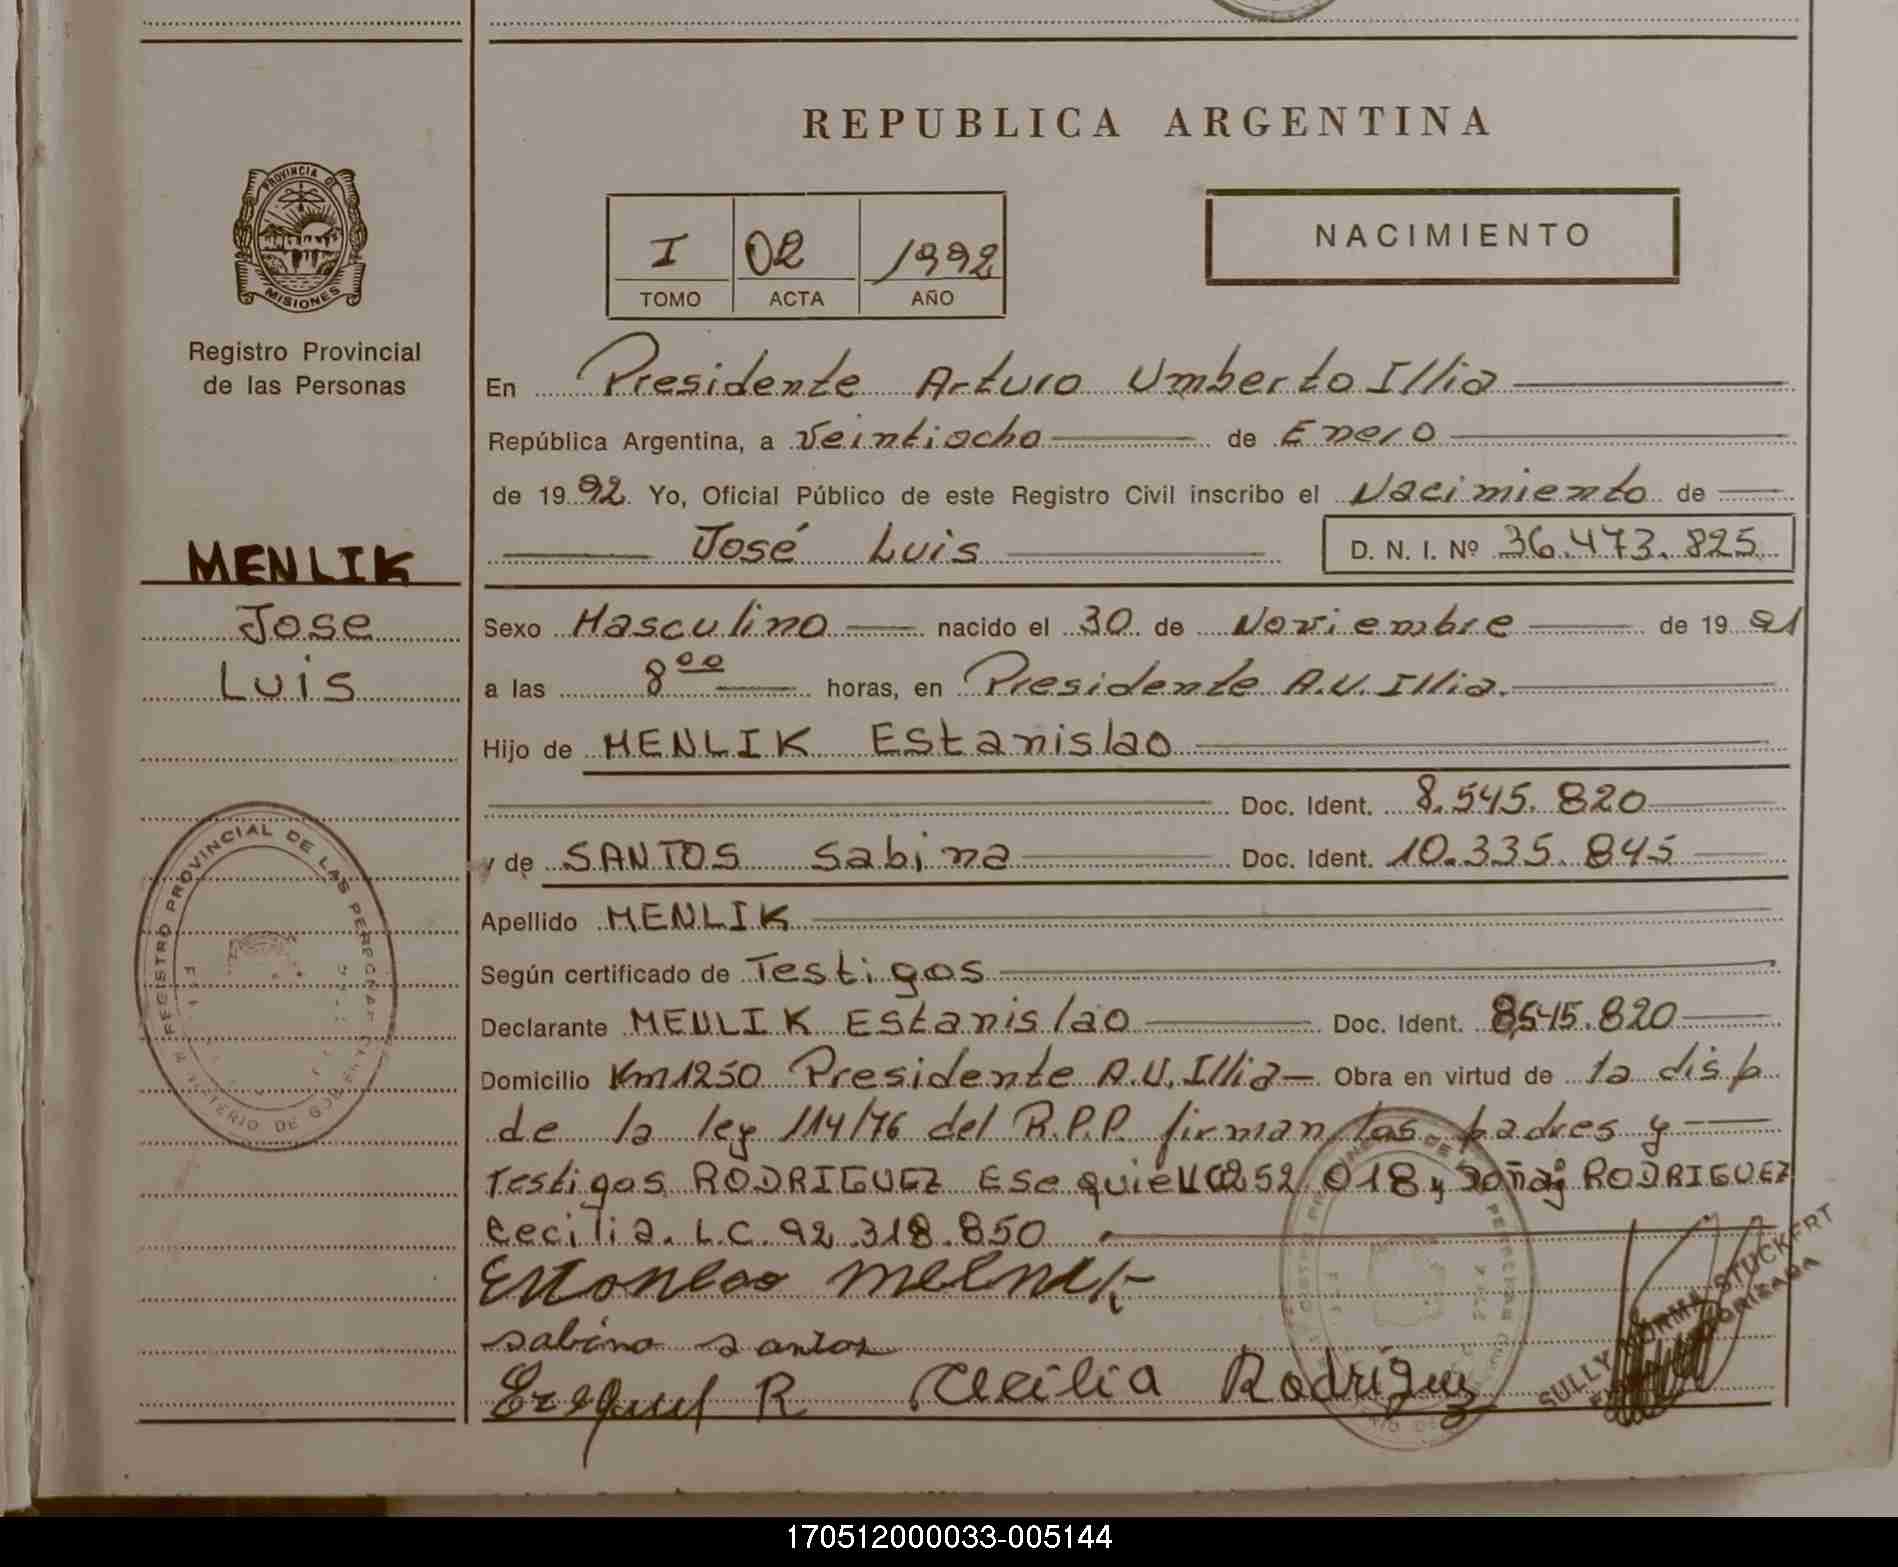 REPUBLICA ARGENTINA
PROVINCIA DE
MISIONES
Registro Provincial
de las Personas
MENLIK
Jose
Luis
REGISTRO PROVINCIAL DE LAS PERSONAS
I 02 1992
TOMO ACTA AÑO
NACIMIENTO
En Presidente Arturo Umberto Illia
República Argentina, a Veintiocho de Enero
de 1992. Yo, Oficial Público de este Registro Civil inscribo el Nacimiento de
José Luis D. N. I. Nº 36.473.825
Sexo Masculino nacido el 30 de Noviembre de 1991
a las 8 00 horas, en Presidente A.U. Illia.
Hijo de MENLIK Estanislao
Doc. Ident. 8.545.820
y de SANTOS Sabina Doc. Ident. 10.335.845
Apellido MENLIK
Según certificado de Testigos
Declarante MENLIK Estanislao Doc. Ident. 8545.820
Domicilio Km1250 Presidente A.U. Illia Obra en virtud de la disp
de la ley 114/76 del R.P.P. firman los padres y
Testigos RODRIGUEZ Esequiel 018 y doña RODRIGUEZ
Cecilia. L.C. 92.318.850
sabina santos
Ezequiel R Cecilia Rodriguez
SULLY NORMA STUCKERT
AUTORIZADA
170512000033-005144